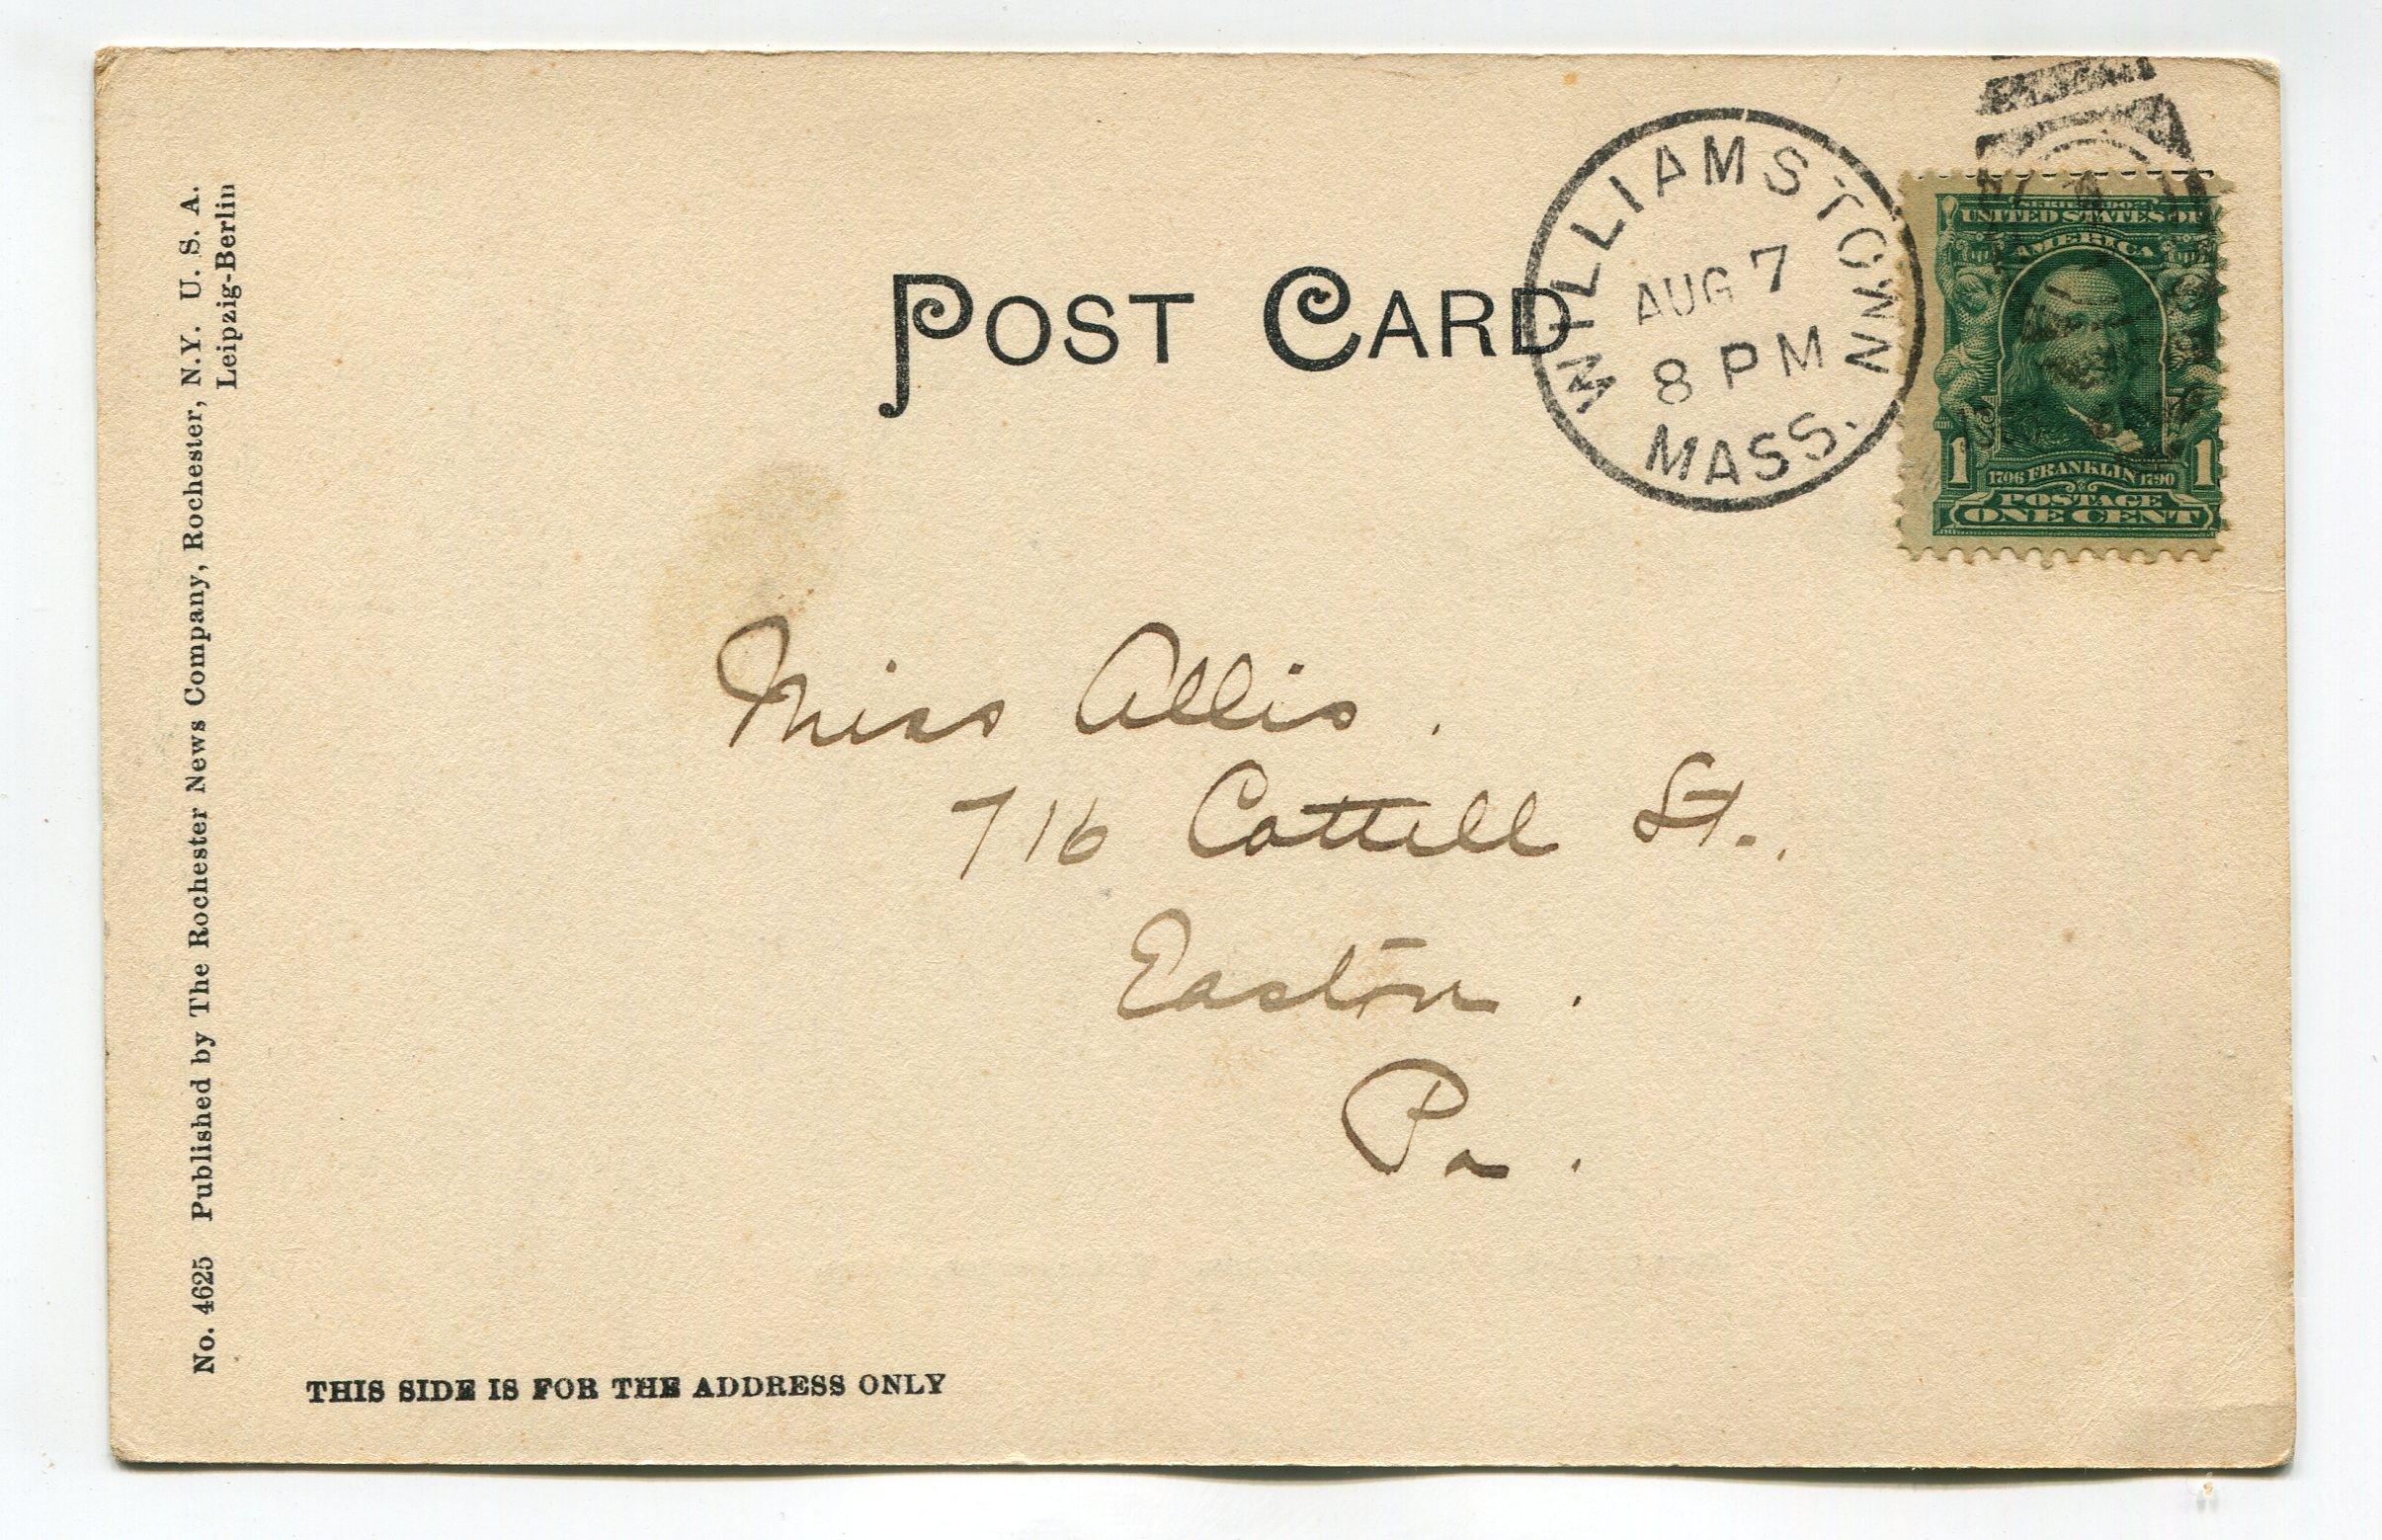 POST CARD
WILLIAMSTOWN
AUG 7
8 PM
MASS.
SERIES 1902
UNITED STATES OF
AMERICA
1 1706 FRANKLIN 1790 1
POSTAGE
ONE CENT
Miss Allis.
716 Cattell St.,
Easton.
Pa.
No. 4625 Published by The Rochester News Company, Rochester, N.Y. U. S. A.
Leipzig-Berlin
THIS SIDE IS FOR THE ADDRESS ONLY